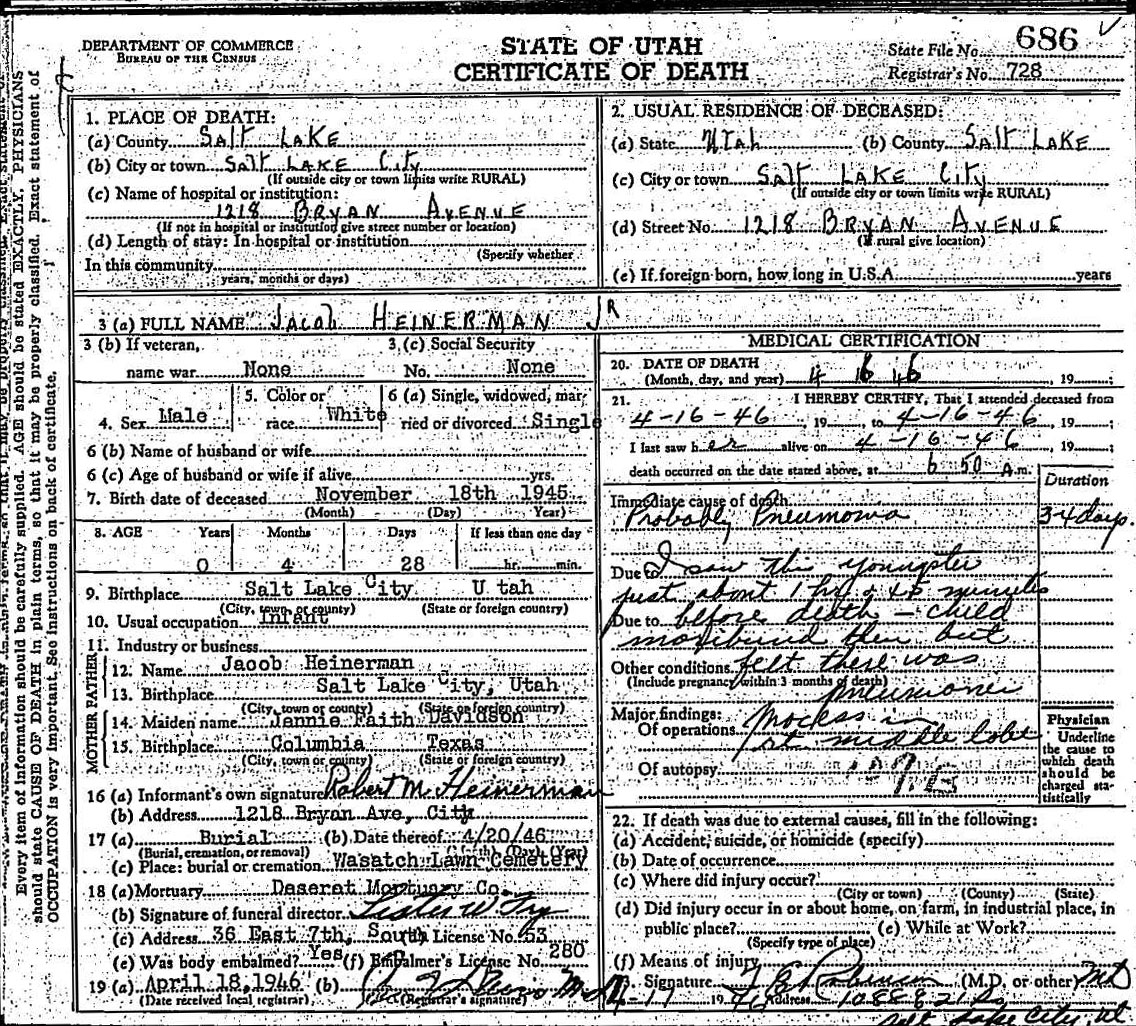 DEPARTMENT OF COMMERCE
BUREAU OF THE CENSUS
STATE OF UTAH
CERTIFICATE OF DEATH
State File No. 686
Registrar's No. 728
Every item of information should be carefully supplied. AGE should be stated EXACTLY. PHYSICIANS
should state CAUSE OF DEATH in plain terms, so that it may be properly classified. Exact statement of
OCCUPATION is very important. See instructions on back of certificate.
1. PLACE OF DEATH:
(a) County SALT LAKE
(b) City or town SALT LAKE City
(If outside city or town limits write RURAL)
(c) Name of hospital or institution:
1218 BRYAN AVENUE
(If not in hospital or institution give street number or location)
(d) Length of stay: In hospital or institution
(Specify whether
In this community
years, months or days)
2. USUAL RESIDENCE OF DECEASED:
(a) State UTah (b) County SALT LAKE
(c) City or town SALT LAKE City
(If outside city or town limits write RURAL)
(d) Street No. 1218 BRYAN AVENUE
(If rural give location)
(e) If foreign born, how long in U.S.A. years
3 (a) FULL NAME JACOB HEINERMAN JR
3 (b) If veteran, 3 (c) Social Security
name war None No. None
4. Sex Male 5. Color or race White 6 (a) Single, widowed, married or divorced Single
6 (b) Name of husband or wife
6 (c) Age of husband or wife if alive yrs.
7. Birth date of deceased November 18th 1945
(Month) (Day) Year)
8. AGE Years Months Days If less than one day
0 4 28 hr. min.
9. Birthplace Salt Lake City U tah
(City, town, or county) (State or foreign country)
10. Usual occupation Infant
11. Industry or business
FATHER
12. Name Jacob Heinerman
13. Birthplace Salt Lake City, Utah
(City, town or county) (State or foreign country)
MOTHER
14. Maiden name Jennie Faith Davidson
15. Birthplace Columbia Texas
(City, town or county) (State or foreign country)
16 (a) Informant's own signature Robert M. Heinerman
(b) Address 1218 Bryan Ave, City
17 (a) Burial (b) Date thereof 4/20/46
(Burial, cremation, or removal) (Month) (Day) (Year)
(c) Place: burial or cremation Wasatch Lawn Cemetery
18 (a) Mortuary Deseret Mortuary Co.
(b) Signature of funeral director
(c) Address 36 East 7th, South License No. 53
(e) Was body embalmed? Yes (f) Embalmer's License No. 280
19 (a) April 18, 1946 (b)
(Date received local registrar) (Registrar's signature)
MEDICAL CERTIFICATION
20. DATE OF DEATH
(Month, day, and year) 4 16 46, 19
21. I HEREBY CERTIFY, That I attended deceased from
4-16-46, 19 to 4-16-46, 19
I last saw her alive on 4-16-46 19
death occurred on the date stated above, at 6 50 A.m.
Duration
Immediate cause of death
Probably Pneumonia 3-4 days.
Due to I saw this youngster
just about 1 hr & 45 minutes
Due to before death - child
moribund then but
Other conditions felt there was
(Include pregnancy within 3 months of death)
pneumonia
Major findings:
Of operations in
middle lobe
Of autopsy
Physician
Underline
the cause to
which death
should be
charged statistically
22. If death was due to external causes, fill in the following:
(a) Accident, suicide, or homicide (specify)
(b) Date of occurrence
(c) Where did injury occur?
(City or town) (County) (State)
(d) Did injury occur in or about home, on farm, in industrial place, in
public place? (e) While at Work?
(Specify type of place)
(f) Means of injury
Signature (M.D. or other) MD
4-17 1946 Address 1088 E 21 So
Salt Lake City, Ut